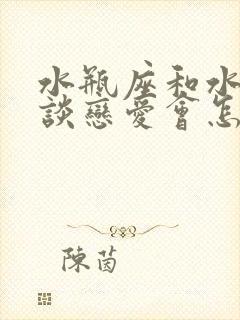 水瓶座和水
談戀愛會怎
陳茵